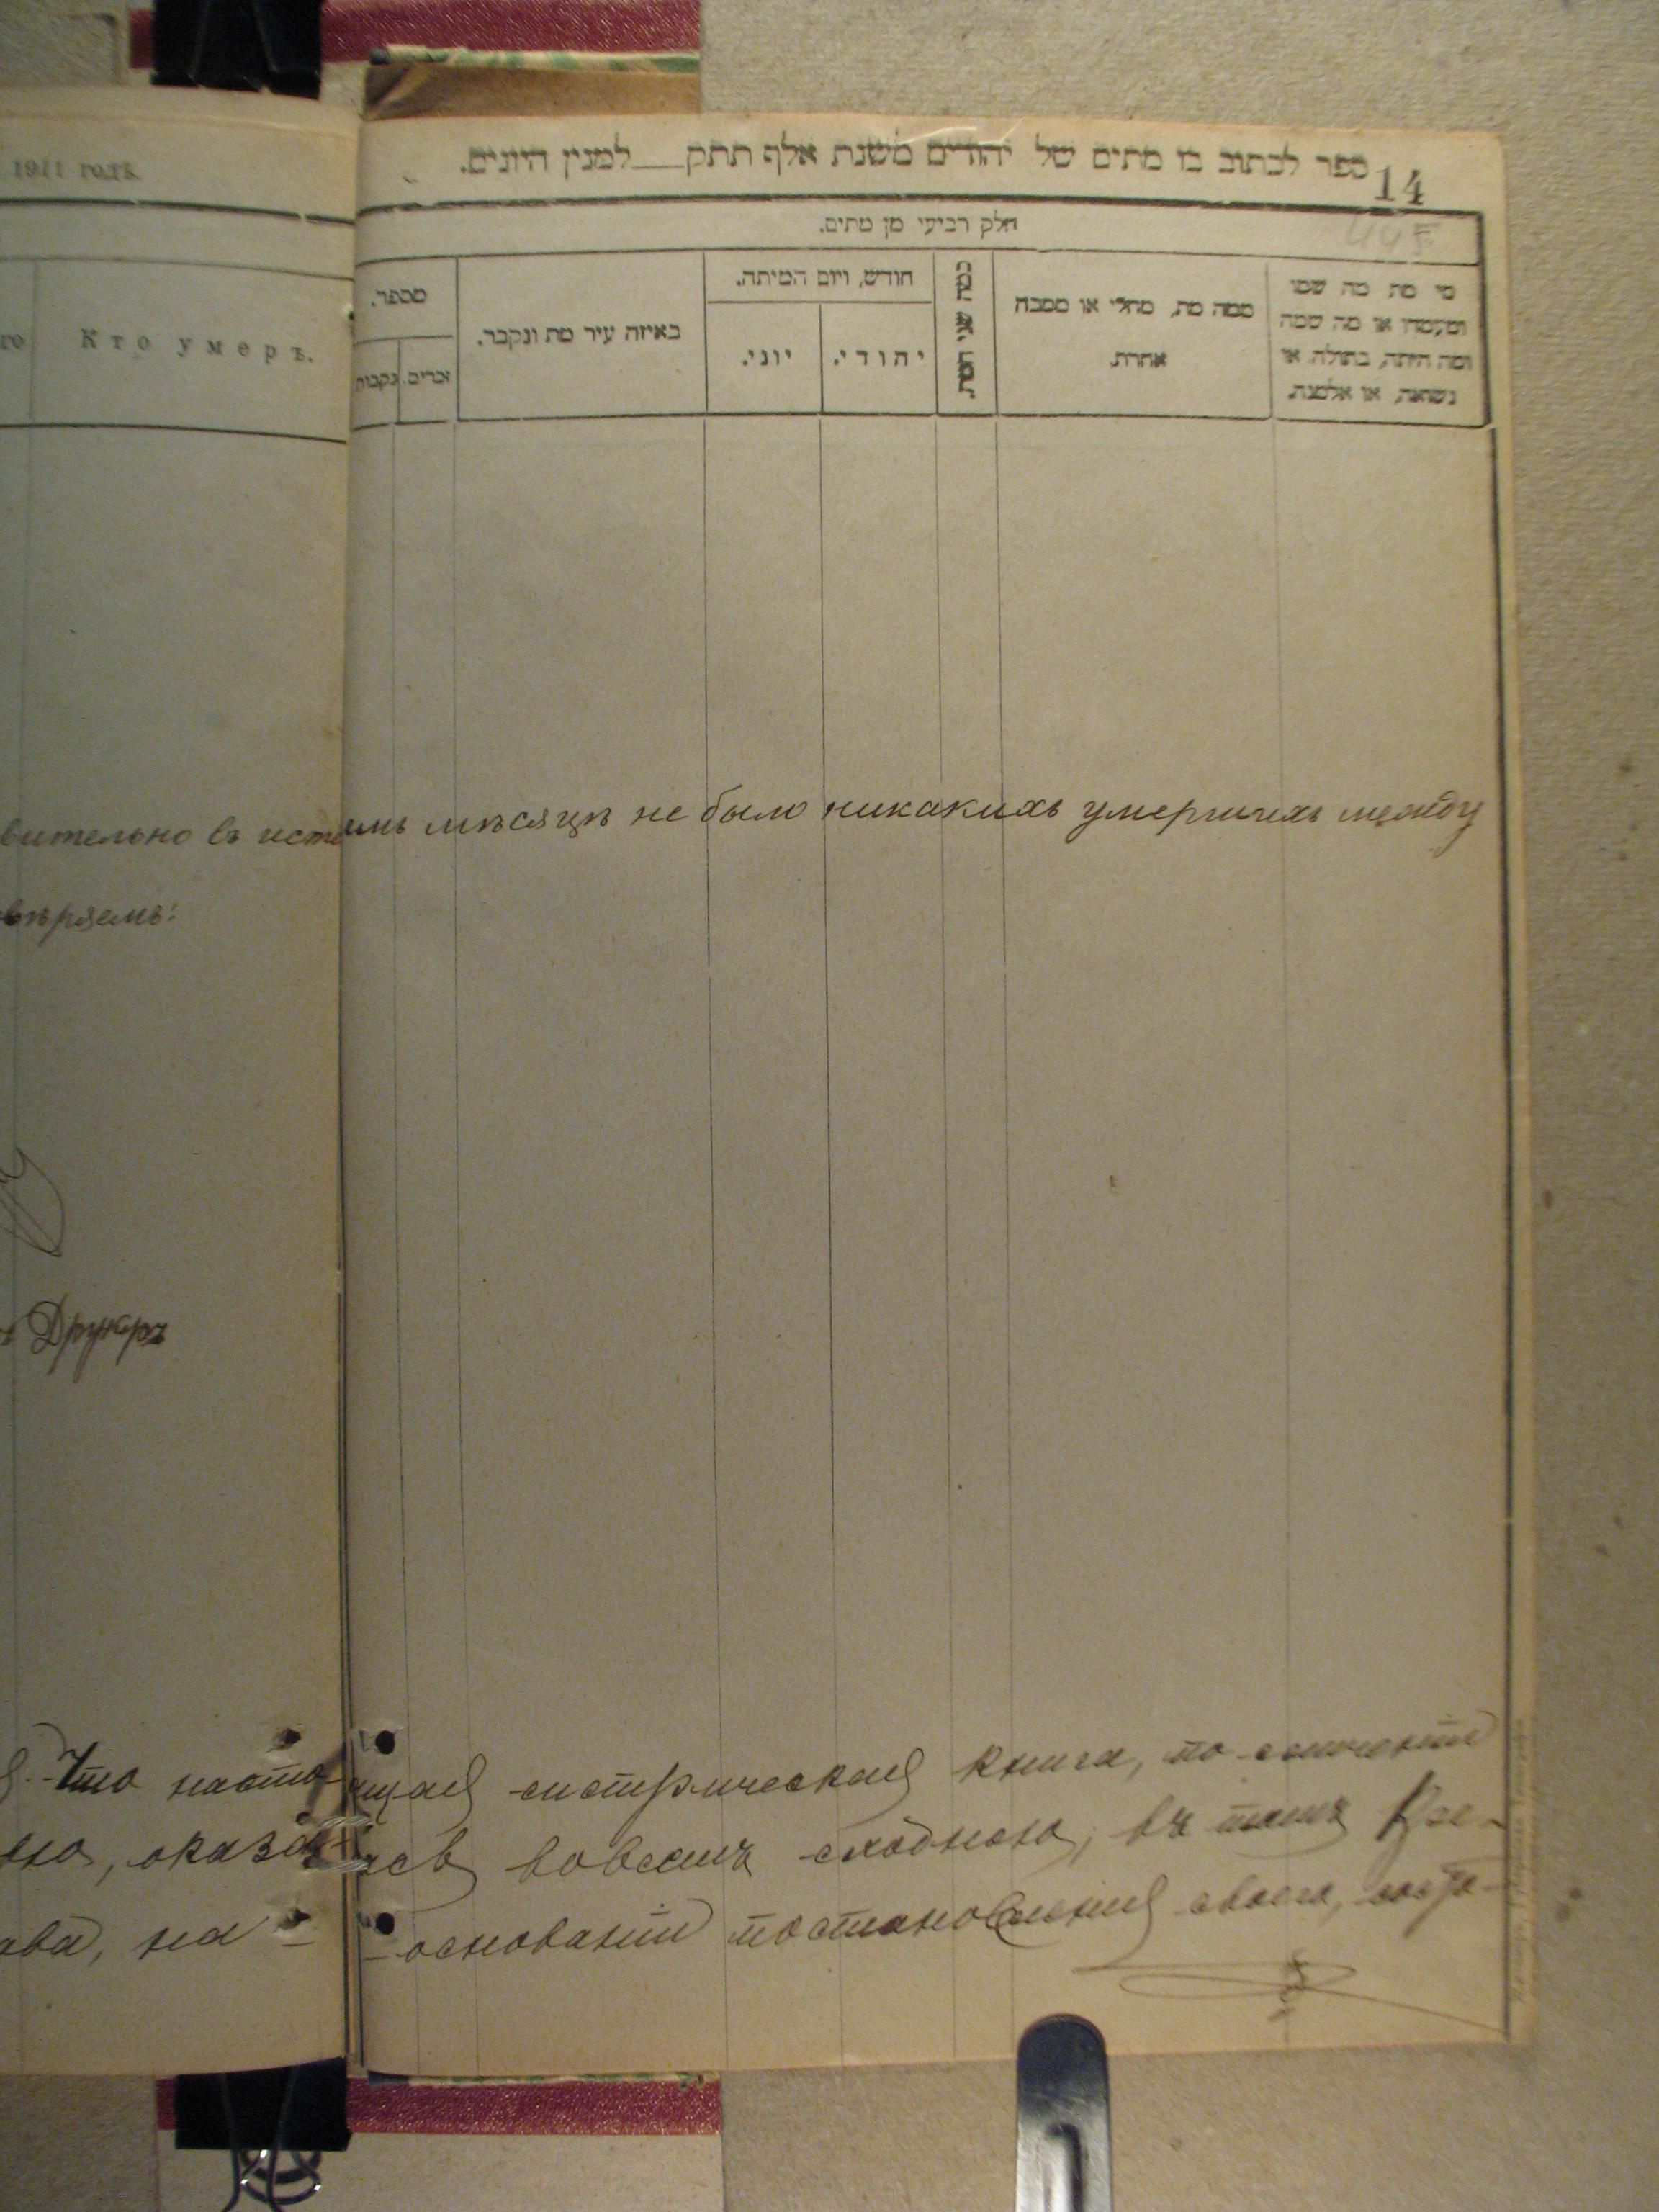 1911 годѣ.
ספר לכתוב בו מתים של יהודים משנת אלף תתק למנין היונים.
14
חלק רביעי מן מתים.
Кто умеръ.
מספר.
זכרים.
נקבות
באיזה עיר מת ונקבר.
חודש, ויום המיתה.
יהודי.
יוני.
כמה שני המת.
ממה מת, מחלי או מסבה
אחרת
מי מת מה שמו
ומעמדו או מה שמה
ומה היתה, בתולה או
נשואה, או אלמנה.
вительно въ истемъ мѣсяцѣ не было никакихъ умершихъ между
вѣряемъ:
Друкеръ
Что настоящая метрическая книга, по сличеніи
оказалась вовсемъ сходною, въ томъ
ава, на основаніи постановленія своего,